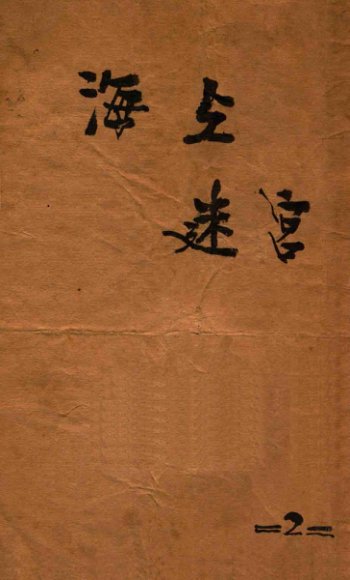 海上
迷宫
=2=